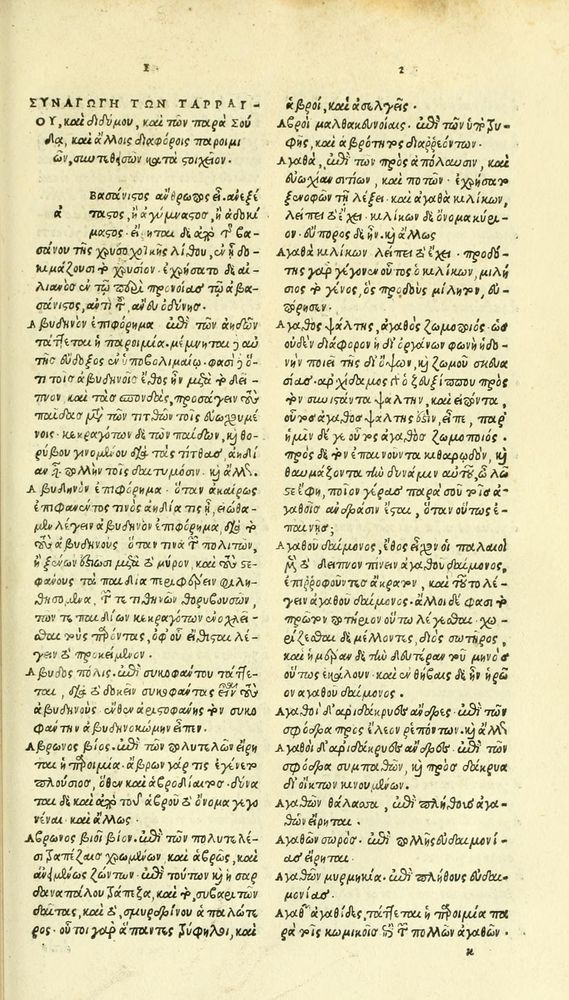 1
ΣΥΝΑΓΩΓΗ ΤΩΝ ΤΑΡΡΑΙ-
ΟΥ, καὶ διδύμου, καὶ τῶν παρὰ Σού
δᾳ, καὶ ἄλλοις διαφόροις παροιμι
ῶν, συντεθησῶν κατὰ στοιχεῖον.
Ἀβασάνιστος ἄνθρωπος εἶ. ἀνεξέ
ταστος, ἢ ἀγύμναστος, ἢ ἀδοκί
μαστος. εἴρηται δὲ ἀπὸ τῆς βα-
σάνου τῆς χρυσοχοϊκῆς λίθου, ἐν ᾗ δο-
κιμάζουσι τὸ χρυσίον. ἐχρήσατο δὲ αἰ-
λιανὸς ἐν τῷ περὶ προνοίας τῷ ἀβα-
σάνιστος, ἀντὶ τοῦ, ἄνευ ὀδύνης.
Ἀβυδηνὸν ἐπιφόρημα. ἐπὶ τῶν ἀηδῶν
τάττεται ἡ παροιμία. μέμνηται αὐ
τῆς εὔδοξος ἐν ὑποβολιμαίῳ. φασὶ ὅ-
τι τοῖς ἀβυδηνοῖς ἔθος ἦν μετὰ τὸ δεῖ-
πνον, καὶ τὰς σπονδὰς, προσάγειν τοὺς
παῖδας μετὰ τῶν τιτθῶν τοῖς εὐωχουμέ
νοις. κεκραγότων δὲ τῶν παίδων, καὶ θο-
ρύβου γινομένου διὰ τὰς τίτθας, ἀηδί
αν εἶναι πολλὴν τοῖς δαιτυμόσιν. καὶ ἄλλως.
Ἀβυδηνὸν ἐπιφόρημα. ὅταν ἀκαίρως
ἐπιφανέντος τινὸς ἀηδία τις ᾖ, εἰώθα-
μεν λέγειν ἀβυδηνὸν ἐπιφόρημα, διὰ τὸ
τοὺς ἀβυδηνοὺς ὅταν τινὰ τῶν πολιτῶν,
ἢ ξένων ἑστιῶσι μετὰ τὸ μύρον, καὶ τοὺς στε-
φάνους τὰ παιδία περιφέρειν φιλη-
θησόμενα, τῶν τε τιθηνῶν θορυβουσῶν,
τῶν τε παιδίων κεκραγότων ἐνοχλεῖ-
σθαι τοὺς παρόντας, ἀφ' οὗ εἴθισται λέ-
γειν τὸ προκείμενον.
Ἄβυδος πόλις. ἐπὶ συκοφάντου τάττε-
ται, διὰ τὸ δοκεῖν συκοφάντας εἶναι τοὺς
ἀβυδηνούς. ἔνθεν ἀριστοφάνης τὸν συκο
φάντην ἀβυδηνοκώμην εἶπεν.
Ἅβρωνος βίος. ἐπὶ τῶν πολυτελῶν εἴρη
ται ἡ παροιμία. ἅβρων γάρ τις ἐγένετο
πλούσιος, ὅθεν καὶ ἁβροδίαιτος. δύνα
ται δὲ καὶ ἀπὸ τοῦ ἁβροῦ τὸ ὄνομα γεγο
νέναι. καὶ ἄλλως.
Ἅβρωνος βιοῖ βίον. ἐπὶ τῶν πολυτελέ-
σι τραπέζαις χρωμένων, καὶ ἁβρῶς, καὶ
ἀνειμένως ζώντων. ἐπὶ τούτων καὶ ἡ σαρ
δαναπάλου τράπεζα, καὶ τὸ, συβαριτῶν
δαῖτας, καὶ τὸ, σμυνδυρίνου ἁπαλώτε
ρος. οὗτοι γὰρ ἅπαντες τρυφηλοὶ, καὶ
2
ἁβροὶ, καὶ ἀσελγεῖς.
Ἁβροὶ μαλθακευνοίαις. ἐπὶ τῶν ὑπὸ τρυ-
φῆς, καὶ ἁβρότητος διαρρεόντων.
Ἀγαθὰ, ἐπὶ τῶν πρὸς ἀπόλαυσιν, καὶ
εὐωχίαν σιτίων, καὶ ποτῶν. ἐχρήσατο
ξενοφῶν τῇ λέξει. καὶ ἀγαθὰ κιλίκων,
λείπει τὸ ἔχει. κιλίκων δὲ ὄνομα κύρι-
ον. εὔπορος δὲ ἦν. καὶ ἄλλως
Ἀγαθὰ κιλίκων λείπει τὸ ἔχει. προδό-
της γὰρ γέγονεν οὗτος ὁ κιλίκων, μιλή
σιος τὸ γένος, ὃς προδοὺς μίλητον, εὐ-
πόρησεν.
Ἀγαθὸς ψάλτης, ἀγαθὸς ζωμοποιός. ὡς
οὐδὲν διάφορον ἢ δι' ὀργάνων φωνὴν ἡδο-
νὴν ποιεῖ τῆς δι' ὄψων, καὶ ζωμοῦ σκευα
σίας. ἀρχίδαμος δὲ ὁ ζευξίππου πρὸς
τὸν συνιστάντα ψάλτην, καὶ εἰπόντα,
οὗτος ἀγαθὸς ψάλτης ἐστὶν, εἶπε, παρ'
ἡμῖν δέ γε οὗτος ἀγαθὸς ζωμοποιός.
πρὸς δὲ τὸν ἐπαινοῦντα κιθαρῳδὸν, καὶ
θαυμάζοντα τὴν δύναμιν αὐτοῦ, ὦ λῷ
στε ἔφη, ποῖον γέρας παρὰ σοῦ τοῖς ἀ-
γαθοῖς ἀνδράσιν ἔσται, ὅταν οὕτως ἐ-
παινῇς;
Ἀγαθοῦ δαίμονος, ἔθος εἶχον οἱ παλαιοὶ
μετὰ τὸ δεῖπνον πίνειν ἀγαθοῦ δαίμονος,
ἐπιρροφοῦντες ἄκρατον, καὶ τοῦτο λέ-
γειν ἀγαθοῦ δαίμονος. ἄλλοι δέ φασι τὸ
πρῶτον ποτήριον οὕτω λέγεσθαι. χω-
ρίζεσθαι δὲ μέλλοντες, διὸς σωτῆρος,
καὶ ἡμέραν δὲ τὴν δευτέραν τοῦ μηνὸς
οὕτως ἐκάλουν. καὶ ἐν θήβαις δὲ ἦν ἡρῷ
ον ἀγαθοῦ δαίμονος.
Ἀγαθοὶ δ' ἀριδάκρυες ἄνδρες. ἐπὶ τῶν
σφόδρα πρὸς ἔλεον ῥεπόντων. καὶ ἄλλως
Ἀγαθοὶ δ' ἀριδάκρυες ἄνδρες. ἐπὶ τῶν
σφόδρα συμπαθῶν, καὶ πρὸς δάκρυα
δι' οἶκτον κινουμένων.
Ἀγαθῶν θάλασσα, ἐπὶ πλήθους ἀγα-
θῶν εἴρηται.
Ἀγαθῶν σωρός. ἐπὶ πολλῆς εὐδαιμονί-
ας εἴρηται.
Ἀγαθῶν μυρμηκία. ἐπὶ πλήθους εὐδαι-
μονίας.
Ἀγαθ' ἀγαθίδες, τάττεται ἡ παροιμία πα
ρὰ τοῖς κωμικοῖς ἐπὶ τῶν πολλῶν ἀγαθῶν.